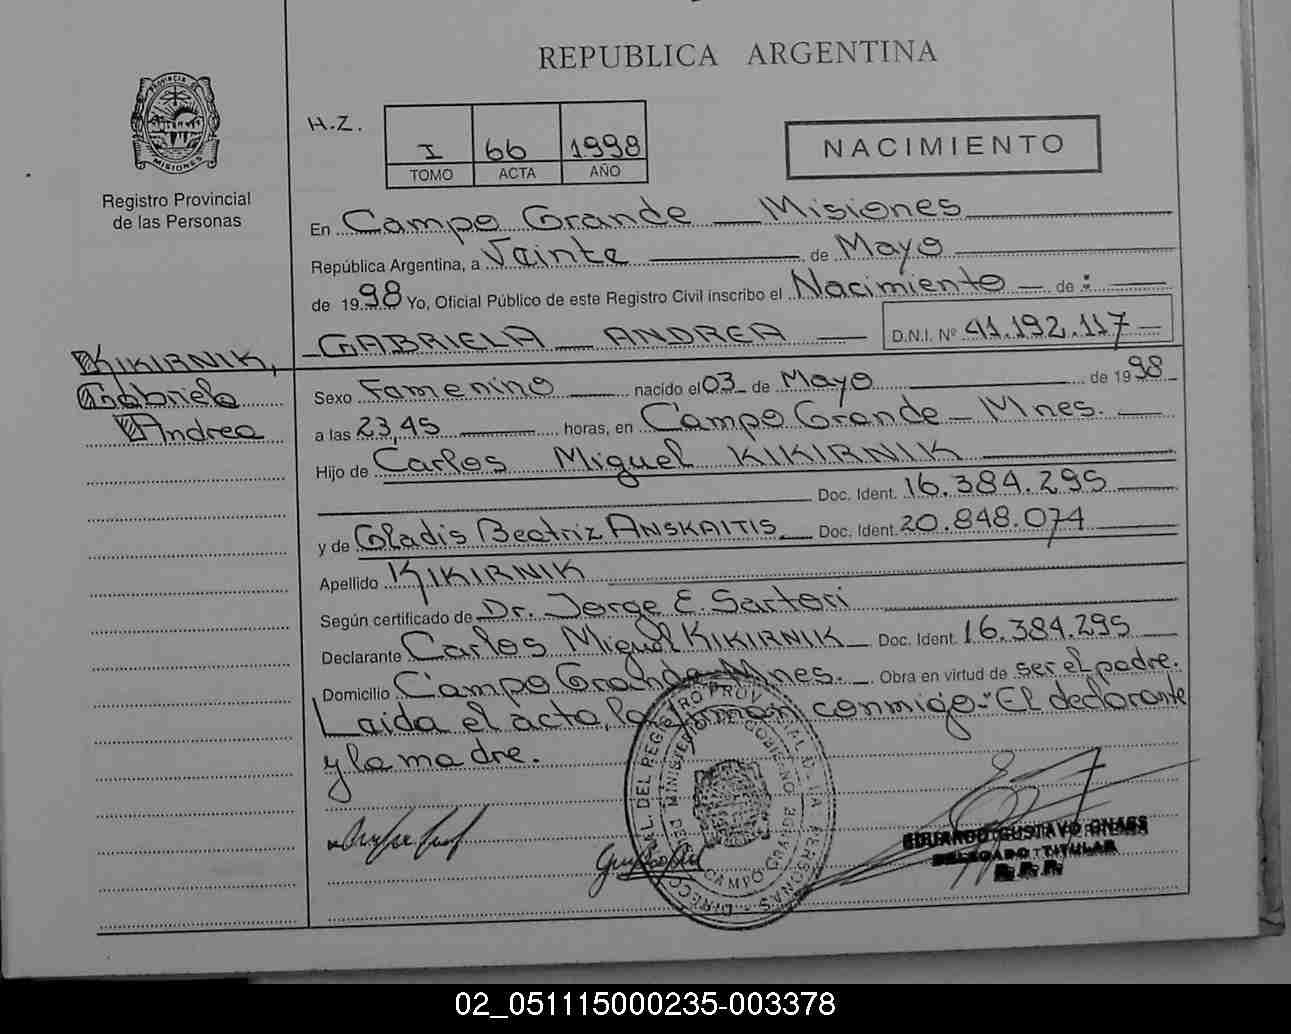 REPUBLICA ARGENTINA
PROVINCIA DE
MISIONES
Registro Provincial
de las Personas
H.Z.
I 66 1998
TOMO ACTA AÑO
NACIMIENTO
En Campo Grande Misiones
República Argentina, a Vainte de Mayo
de 1998 Yo, Oficial Público de este Registro Civil inscribo el Nacimiento de :
GABRIELA ANDREA D.N.I. Nº 41.192.117
KIKIRNIK,
Gabriela
Andrea
Sexo Famenino nacido el 03 de Mayo de 1998
a las 23,45 horas, en Campo Grande - Mnes.
Hijo de Carlos Miguel KIKIRNIK
Doc. Ident. 16.384.295
y de Gladis Beatriz ANSKAITIS Doc. Ident. 20.848.074
Apellido KIKIRNIK
Según certificado de Dr. Jorge E. Sartori
Declarante Carlos Miguel KIKIRNIK Doc. Ident. 16.384.295
Domicilio Campo Grande - Mnes. Obra en virtud de ser el padre.
Laida el acta, la firman conmigo: El declarante
y la madre.
DIRECC. GRAL. DEL REGISTRO PROVINCIAL DE LA PERSONAS
MINISTERIO DE GOBIERNO
CAMPO GRANDE
EDUARDO GUSTAVO
DELEGADO TITULAR
02_051115000235-003378